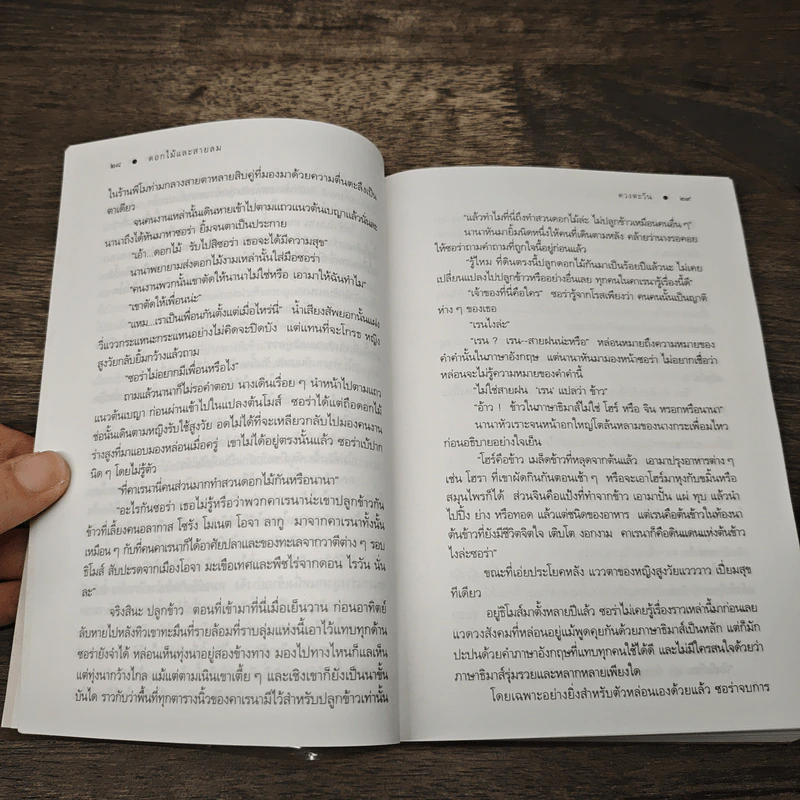 ๒๘ ● ดอกไม้และสายลม
ในร้านพิโมท่ามกลางสายตาหลายสิบคู่ที่มองมาด้วยความตื่นตะลึงเป็น
ตาเดียว
จนคนงานเหล่านั้นเดินหายเข้าไปตามแถวแนวต้นเบญาแล้วนั่นละ
นานาถึงได้หันมาหาซอร่า ยิ้มจนตาเป็นประกาย
“เอ้า...ดอกไม้ รับไปสิซอร่า เธอจะได้มีความสุข”
นานาพยายามส่งดอกไม้งามเหล่านั้นใส่มือซอร่า
“คนงานพวกนั้นเขาตัดให้นานาไม่ใช่หรือ เอามาให้ฉันทำไม”
“เขาตัดให้เพื่อนน่ะ”
“แหม...เราเป็นเพื่อนกันตั้งแต่เมื่อไหร่นี่” น้ำเสียงสัพยอกนั้นแฝง
วี่แววกระแหนะกระแหนอย่างไม่คิดจะปิดบัง แต่แทนที่จะโกรธ หญิง
สูงวัยกลับยิ้มกว้างแล้วถาม
“ซอร่าไม่อยากมีเพื่อนหรือไง”
ถามแล้วนานาก็ไม่รอคำตอบ นางเดินเรื่อย ๆ นำหน้าไปตามแถว
แนวต้นเบญา ก่อนผ่านเข้าไปในแปลงต้นโมส์ ซอร่าได้แต่ถือดอกไม้
ช่อนั้นเดินตามหญิงรับใช้สูงวัย อดไม่ได้ที่จะเหลียวกลับไปมองคนงาน
ร่างสูงที่มาแอบมองหล่อนเมื่อครู่ เขาไม่ได้อยู่ตรงนั้นแล้ว ซอร่าเบ้ปาก
นิด ๆ โดยไม่รู้ตัว
“ที่คาเรนานี่คนส่วนมากทำสวนดอกไม้กันหรือนานา”
“อะไรกันซอร่า เธอไม่รู้หรือว่าพวกคาเรนาน่ะเขาปลูกข้าวกัน
ข้าวที่เลี้ยงคนอลากาส โซรัง โมเนต โอจา ลากู มาจากคาเรนาทั้งนั้น
เหมือน ๆ กับที่คนคาเรนาก็ได้อาศัยปลาและของทะเลจากวาตีต่าง ๆ รอบ
ธิโมส์ สับปะรดจากเมืองโอจา มะเขือเทศและพืชไร่จากดอน ไรวัน นั่น
ละ”
จริงสินะ ปลูกข้าว ตอนที่เข้ามาที่นี่เมื่อเย็นวาน ก่อนอาทิตย์
ลับหายไปหลังทิวเขาทะมึนที่รายล้อมที่ราบลุ่มแห่งนี้เอาไว้แทบทุกด้าน
ซอร่ายังจำได้ หล่อนเห็นทุ่งนาอยู่สองข้างทาง มองไปทางไหนก็แลเห็น
แต่ทุ่งนากว้างไกล แม้แต่ตามเนินเขาเตี้ย ๆ และเชิงเขาก็ยังเป็นนาขั้น
บันได ราวกับว่าพื้นที่ทุกตารางนิ้วของคาเรนามีไว้สำหรับปลูกข้าวเท่านั้น
ดวงตะวัน ● ๒๙
“แล้วทำไมที่นี่ถึงทำสวนดอกไม้ล่ะ ไม่ปลูกข้าวเหมือนคนอื่น ๆ”
นานาหันมายิ้มนิดหนึ่งให้คนที่เดินตามหลัง คล้ายว่านางรอคอย
ให้ซอร่าถามคำถามที่ถูกใจนี้อยู่ก่อนแล้ว
“รู้ไหม ที่ดินตรงนี้ปลูกดอกไม้กันมาเป็นร้อยปีแล้วนะ ไม่เคย
เปลี่ยนแปลงไปปลูกข้าวหรืออย่างอื่นเลย ทุกคนในคาเรนารู้เรื่องนี้ดี”
“เจ้าของที่นี่คือใคร” ซอร่ารู้จากโรสเพียงว่า คนคนนั้นเป็นญาติ
ห่าง ๆ ของเธอ
“เรนไงล่ะ”
“เรน ? เรน--สายฝนน่ะหรือ” หล่อนหมายถึงความหมายของ
คำคำนั้นในภาษาอังกฤษ แต่นานาหันมามองหน้าซอร่า ไม่อยากเชื่อว่า
หล่อนจะไม่รู้ความหมายของคำคำนี้
“ไม่ใช่สายฝน ‘เรน’ แปลว่า ข้าว”
“อ้าว ! ข้าวในภาษาธิมาส์ไม่ใช่ โฮร์ หรือ จิน หรอกหรือนานา”
นานาหัวเราะจนหน้าอกใหญ่โตล้นหลามของนางกระเพื่อมไหว
ก่อนอธิบายอย่างใจเย็น
“โฮร์คือข้าว เมล็ดข้าวที่หลุดจากต้นแล้ว เอามาปรุงอาหารต่าง ๆ
เช่น โฮรา ที่เขาผัดกินกันตอนเช้า ๆ หรือจะเอาโฮร์มาหุงกับขมิ้นหรือ
สมุนไพรก็ได้ ส่วนจินคือแป้งที่ทำจากข้าว เอามาปั้น แผ่ ทุบ แล้วนำ
ไปปิ้ง ย่าง หรือทอด แล้วแต่ชนิดของอาหาร แต่เรนคือต้นข้าวในท้องนา
ต้นข้าวที่ยังมีชีวิตจิตใจ เติบโต งอกงาม คาเรนาก็คือดินแดนแห่งต้นข้าว
ไงล่ะซอร่า”
ขณะที่เอ่ยประโยคหลัง แววตาของหญิงสูงวัยแวววาว เปี่ยมสุข
ทีเดียว
อยู่ธิโมส์มาตั้งหลายปีแล้ว ซอร่าไม่เคยรู้เรื่องราวเหล่านี้มาก่อนเลย
แวดวงสังคมที่หล่อนอยู่แม้พูดคุยกันด้วยภาษาธิมาส์เป็นหลัก แต่ก็มัก
ปะปนด้วยคำภาษาอังกฤษที่แทบทุกคนใช้ได้ดี และไม่มีใครสนใจด้วยว่า
ภาษาธิมาส์รุ่มรวยและหลากหลายเพียงใด
โดยเฉพาะอย่างยิ่งสำหรับตัวหล่อนเองด้วยแล้ว ซอร่าจบการ